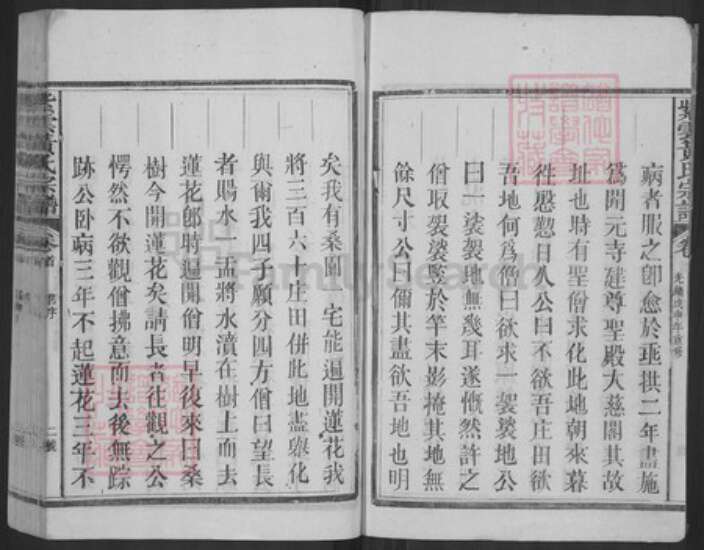 病者服之即愈於垂拱二年盡施
爲開元寺建尊聖殿大慈閣其故
址也時有聖僧求化此地朝來暮
徃懇懃日久公曰不欲吾庄田欲
吾地何爲僧曰欲求一袈裟地公
曰袈裟地無幾耳遂慨然許之
僧取袈裟監於竿末影掩其地無
餘尺寸公曰爾其盡欲吾地也明
矣我有桑園一宅能遍開蓮花我
將三百六十庄田併此地盡舉化
與爾我四子願分四方僧曰望長
者賜水一盂將水瀆在樹上而去
蓮花即時遍開僧明早復來曰桑
樹今開蓮花矣請長者往觀之公
愕然不欲觀僧拂意而去後無踪
跡公卧病三年不起蓮花三年不
紫雲黃氏宗譜
卷首
FamilySearch